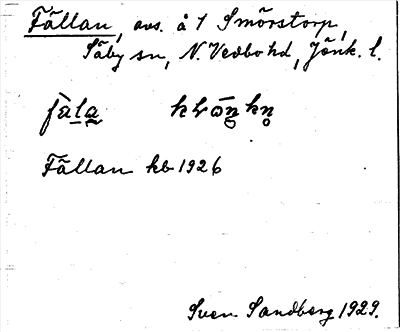 Fällan, avs. å 1 Smörstorp,
Säby sn, N. Vedbo hd, Jönk. l.
fàla
Fällan kb 1926
Sven Sandberg 1929.